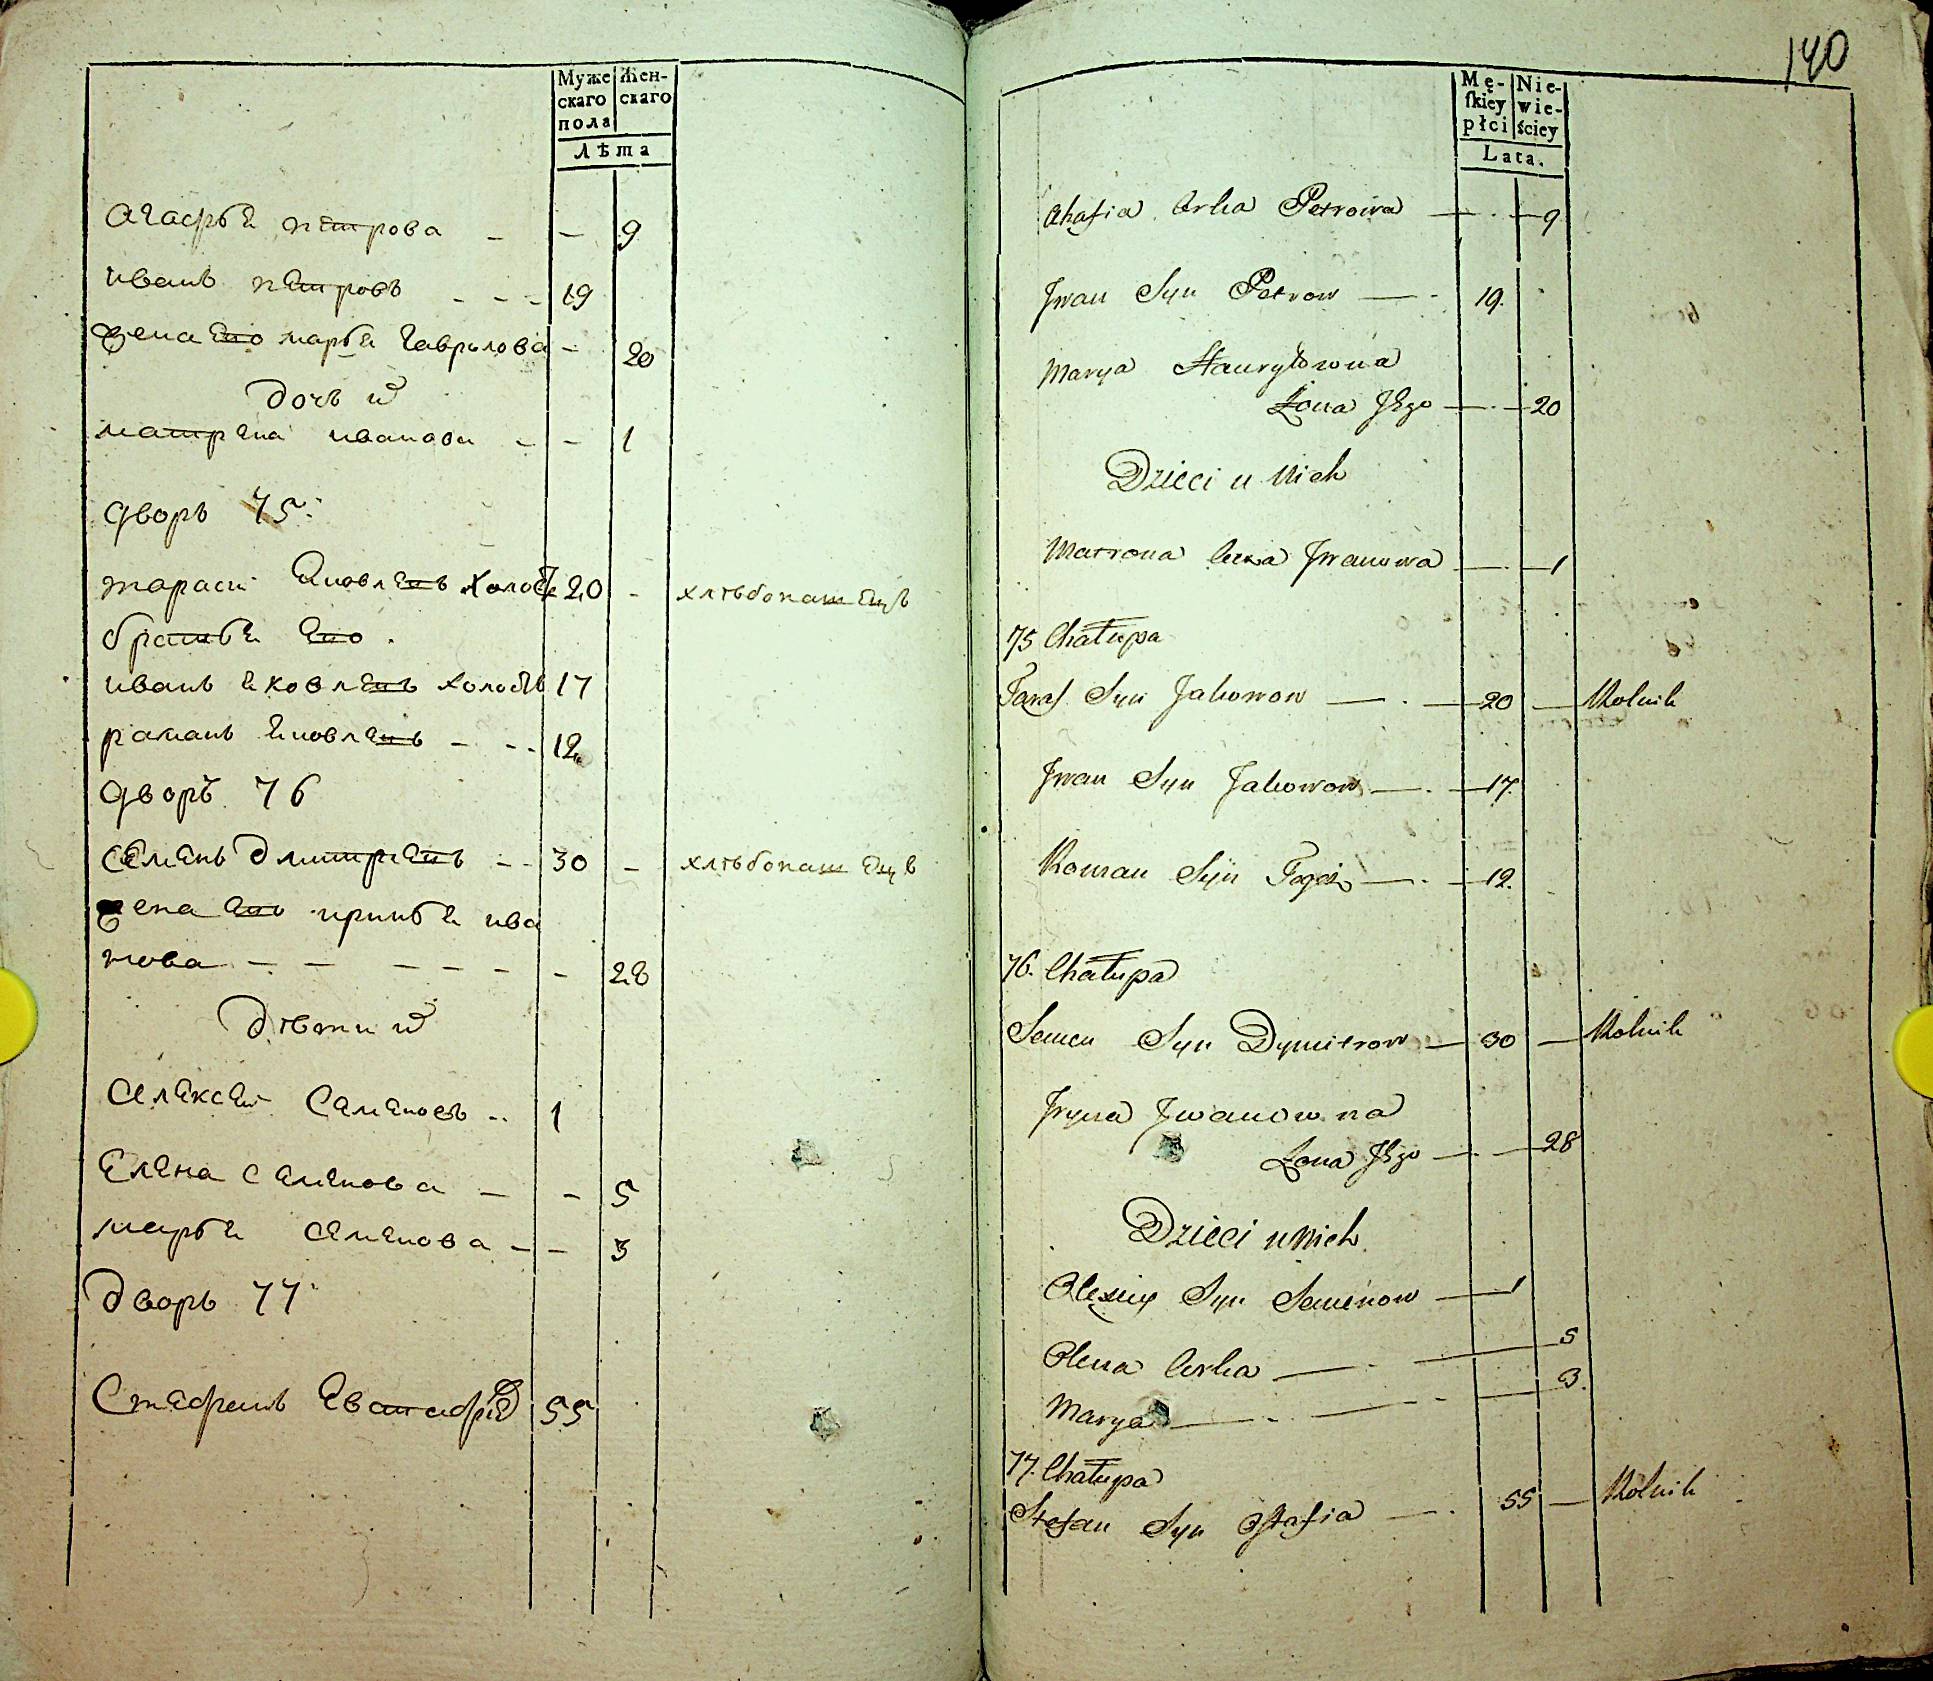 Муже Жен-
скаго скаго
пола
Лѣта
агафья петрова - - 9
иванъ петровъ - - - 19
жена ево марья гаврилова - 20
дочь их
матрена иванова - - 1
дворъ 75
тарасъ яковлевъ холостъ 20 - хлѣбопашецъ
братья ево
иванъ яковлевъ холостъ 17
раманъ яковлевъ - - - 12
дворъ 76
семенъ дмитриевъ - - 30 - хлѣбопашецъ
жена ево иринья ива
нова - - - - - - - 28
дѣти их
алексей семеновъ - 1
елена семенова - - 5
марья семенова - - 3
дворъ 77
стефанъ 55
140
Mę- Nie-
ſkiey wie-
płci ściey
Lata.
Ahafia Corka Petrowa — 9
Jwan Syn Petrow — 19.
Marya Hauryłowna
Żona Jego — 20
Dzieci u Nich
Matrona Curka Jwanowa — 1
75 Chałupa
Taras Syn Jakowow — 20 — Rolnik
Jwan Syn Jakowow — 17.
Roman Syn Togoż — 12.
76. Chałupa
Semen Syn Dymitrow — 30 — Rolnik
Jryna Jwanowna
Żona Jego — 28
Dzieci u Nich
Olexiey Syn Semenow — 1
Olena Corka — 5
Marya — 3.
77. Chałupa
Stefan Syn Ostafia — 55 — Rolnik